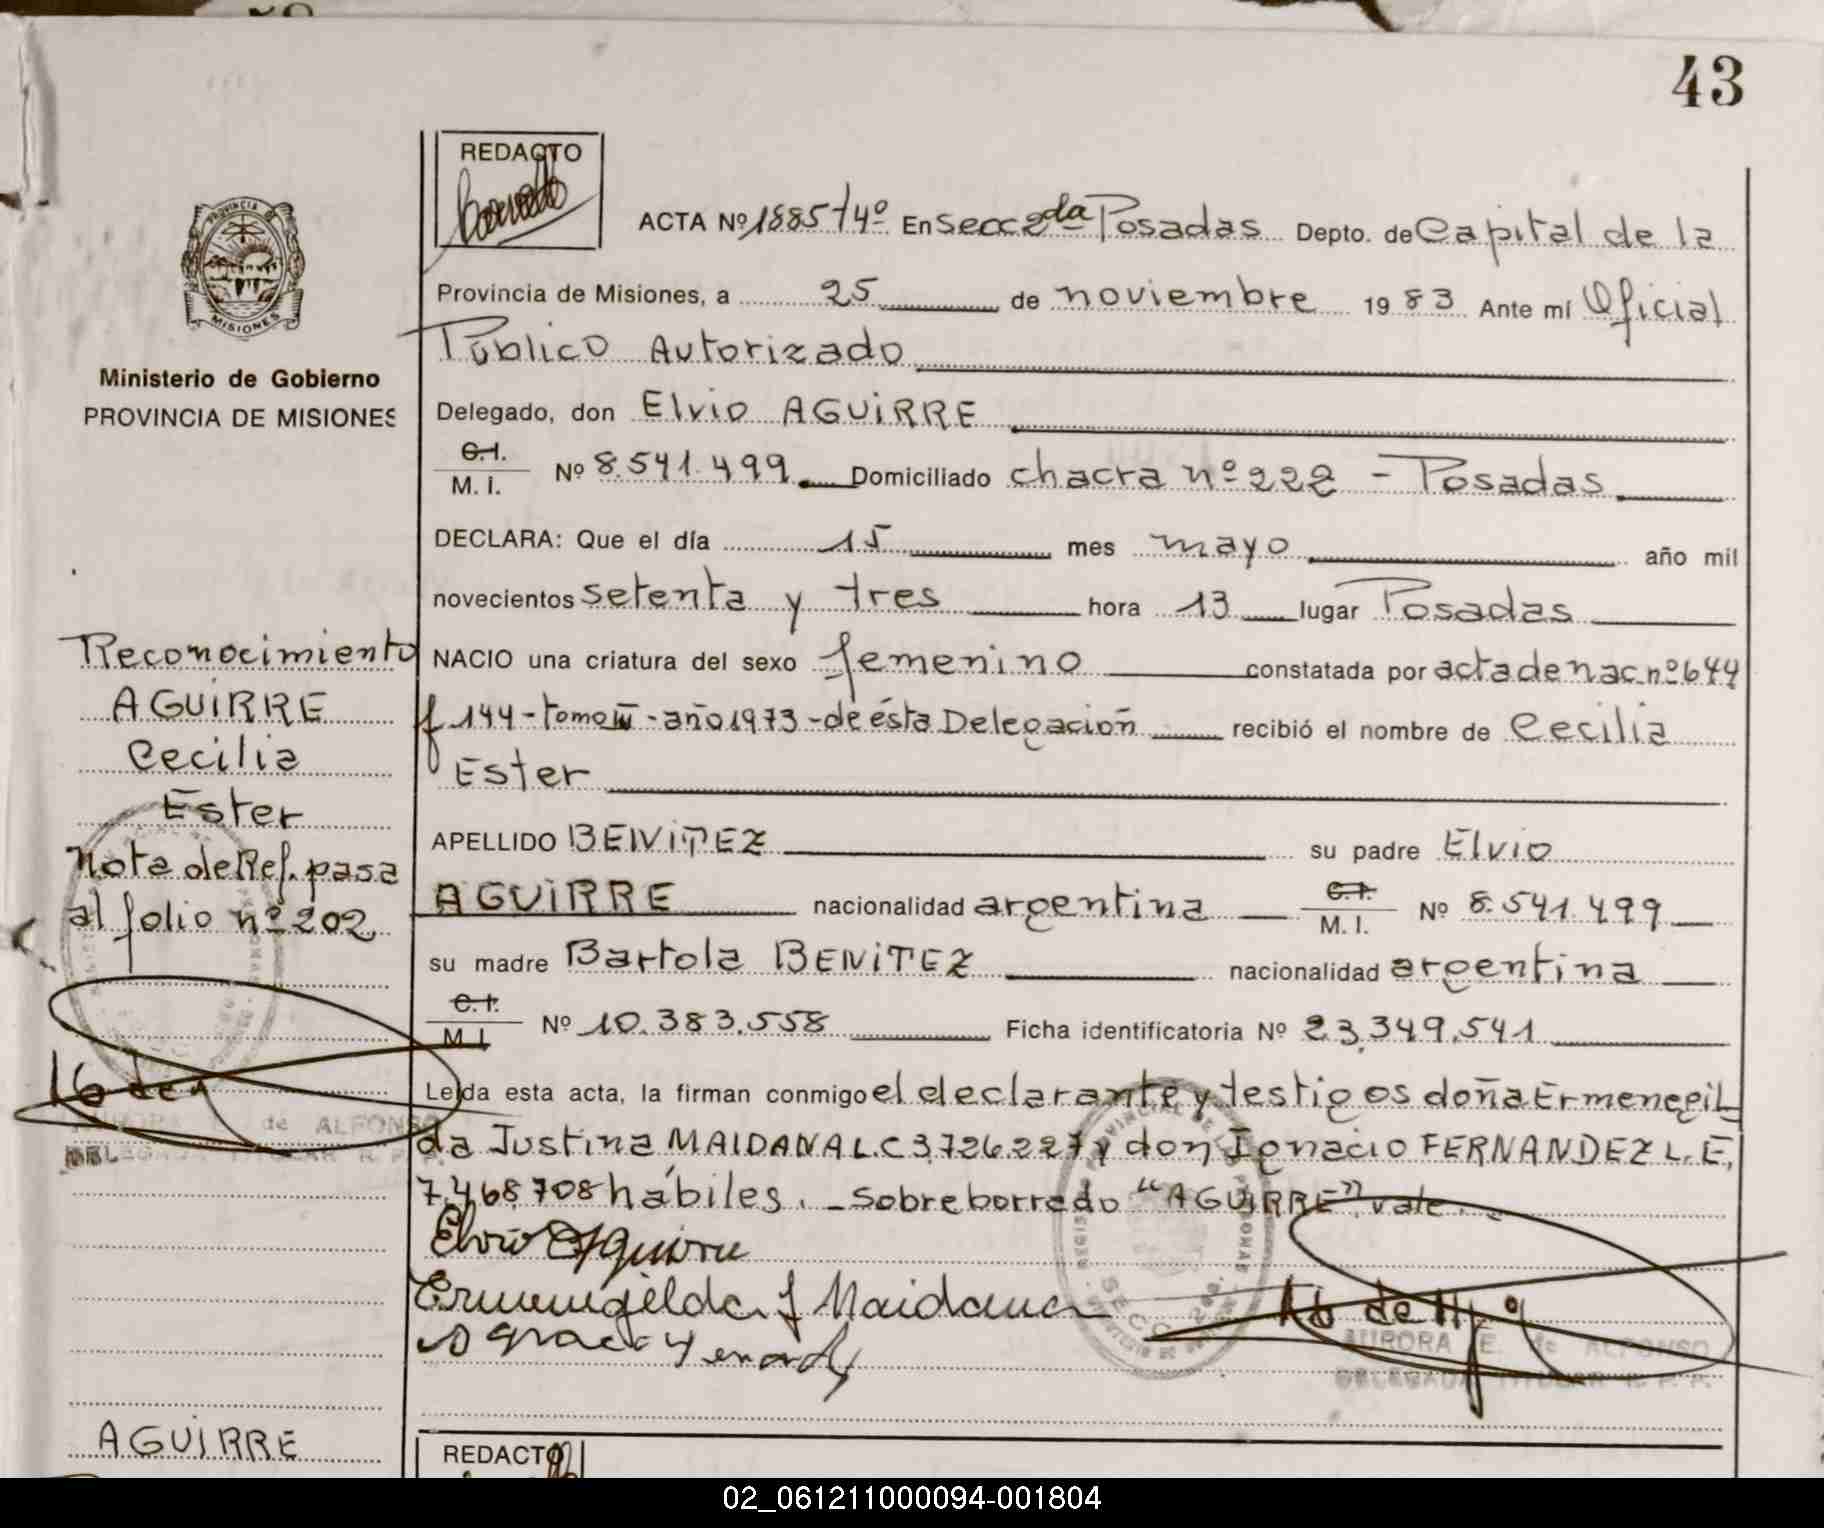 43
REDACTO
ACTA Nº 1885 T4º En Secc 2da Posadas Depto. de Capital de la
Provincia de Misiones, a 25 de noviembre 1983 Ante mí Oficial
Público Autorizado
PROVINCIA DE
MISIONES
Ministerio de Gobierno
PROVINCIA DE MISIONES
Delegado, don Elvio AGUIRRE
C.I.
M. I. Nº 8.541.499 Domiciliado chacra nº 222 - Posadas
DECLARA: Que el día 15 mes mayo año mil
novecientos setenta y tres hora 13 lugar Posadas
NACIO una criatura del sexo femenino constatada por acta de nac. nº 644
f 144 - tomo IV - año 1973 - de ésta Delegación recibió el nombre de Cecilia
Ester
APELLIDO BENITEZ su padre Elvio
AGUIRRE nacionalidad argentina C.I.
M. I. Nº 8.541.499
su madre Bartola BENITEZ nacionalidad argentina
C.I.
M.I. Nº 10.383.558 Ficha identificatoria Nº 23.349.541
Leída esta acta, la firman conmigo el declarante y testigos doña Ermenegil
da Justina MAIDANA L.C 3.726.227 y don Ignacio FERNANDEZ L.E.
7.468.708 hábiles. - Sobreborrado "AGUIRRE" vale.
Elvio Aguirre
Ermenegilda J Maidana
AURORA E. de ALFONSO
DELEGADA TITULAR R. P. P.
Reconocimiento
AGUIRRE
Cecilia
Ester
Nota de Ref. pasa
al folio nº 202
de ALFONSO
DELEGADA TITULAR R. P. P.
AGUIRRE
REDACTO
02_061211000094-001804